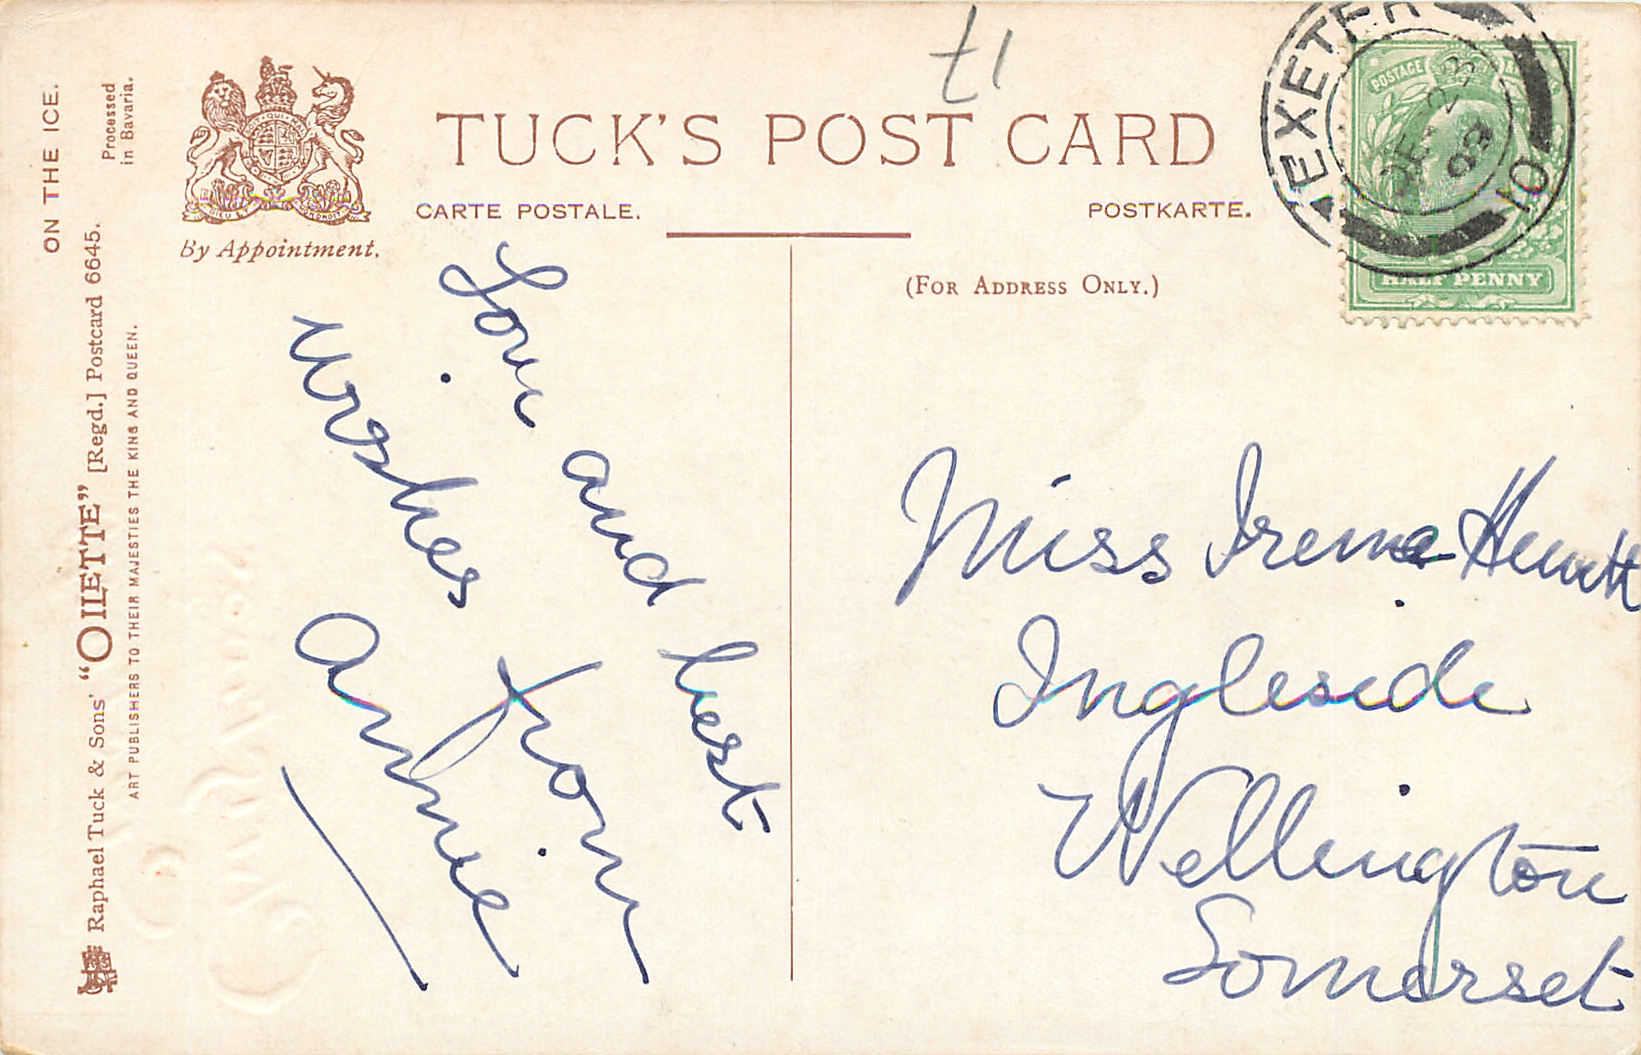 £1
TUCK'S POST CARD
CARTE POSTALE.
POSTKARTE.
(FOR ADDRESS ONLY.)
By Appointment.
ON THE ICE.
Processed
in Bavaria.
Raphael Tuck & Sons' "OILETTE" [Regd.] Postcard 6645.
ART PUBLISHERS TO THEIR MAJESTIES THE KING AND QUEEN.
EXETER
DE 23
09
POSTAGE
HALF PENNY
Love and best
wishes from
Annie
Miss Irene
Ingleside
Wellington
Somerset